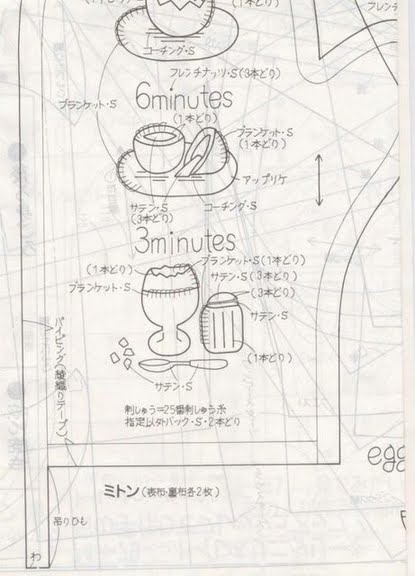 (1本どり)
コーチング・S
フレンチナッツ・S(3本どり)
フレンチ
ブランケット・S
6minutes
(1本どり)
ブランケット・S
(1本どり)
アップリケ
サテン・S
(3本どり)
コーチング・S
3minutes
(1本どり)
ブランケット・S(1本どり)
サテン・S(3本どり)
ブランケット・S
(3本どり)
サテン・S
(1本どり)
サテン・S
刺しゅう=25番刺しゅう糸
指定以外バック・S・2本どり
パイピング(綾織りテープ)
egg
ミトン(表布・裏布各2枚)
吊りひも
わ